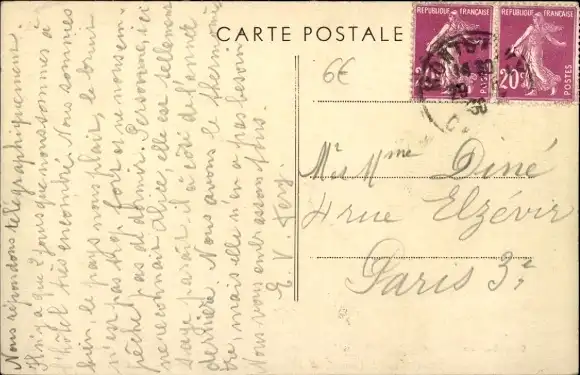 CARTE POSTALE
REPUBLIQUE FRANÇAISE
REPUBLIQUE FRANÇAISE
20c
POSTES
6€
Mr et Mme Diné
4 rue Elzévir
Paris 3e
Nous répondons télégraphiquement.
Il n'y a que 2 jours que nous sommes à
l'hôtel très encombré. Nous sommes
bien, le pays nous plaît, le bruit
n'est pas trop fort et ne nous em-
pêche pas de dormir. Personne, ici
ne reconnaît Alice, elle est tellement
sage paraît-il à côté de l'année
dernière. Nous avons le thermomè-
tre, mais elle n'en a pas besoin
Nous vous embrassons tous.
E. V.